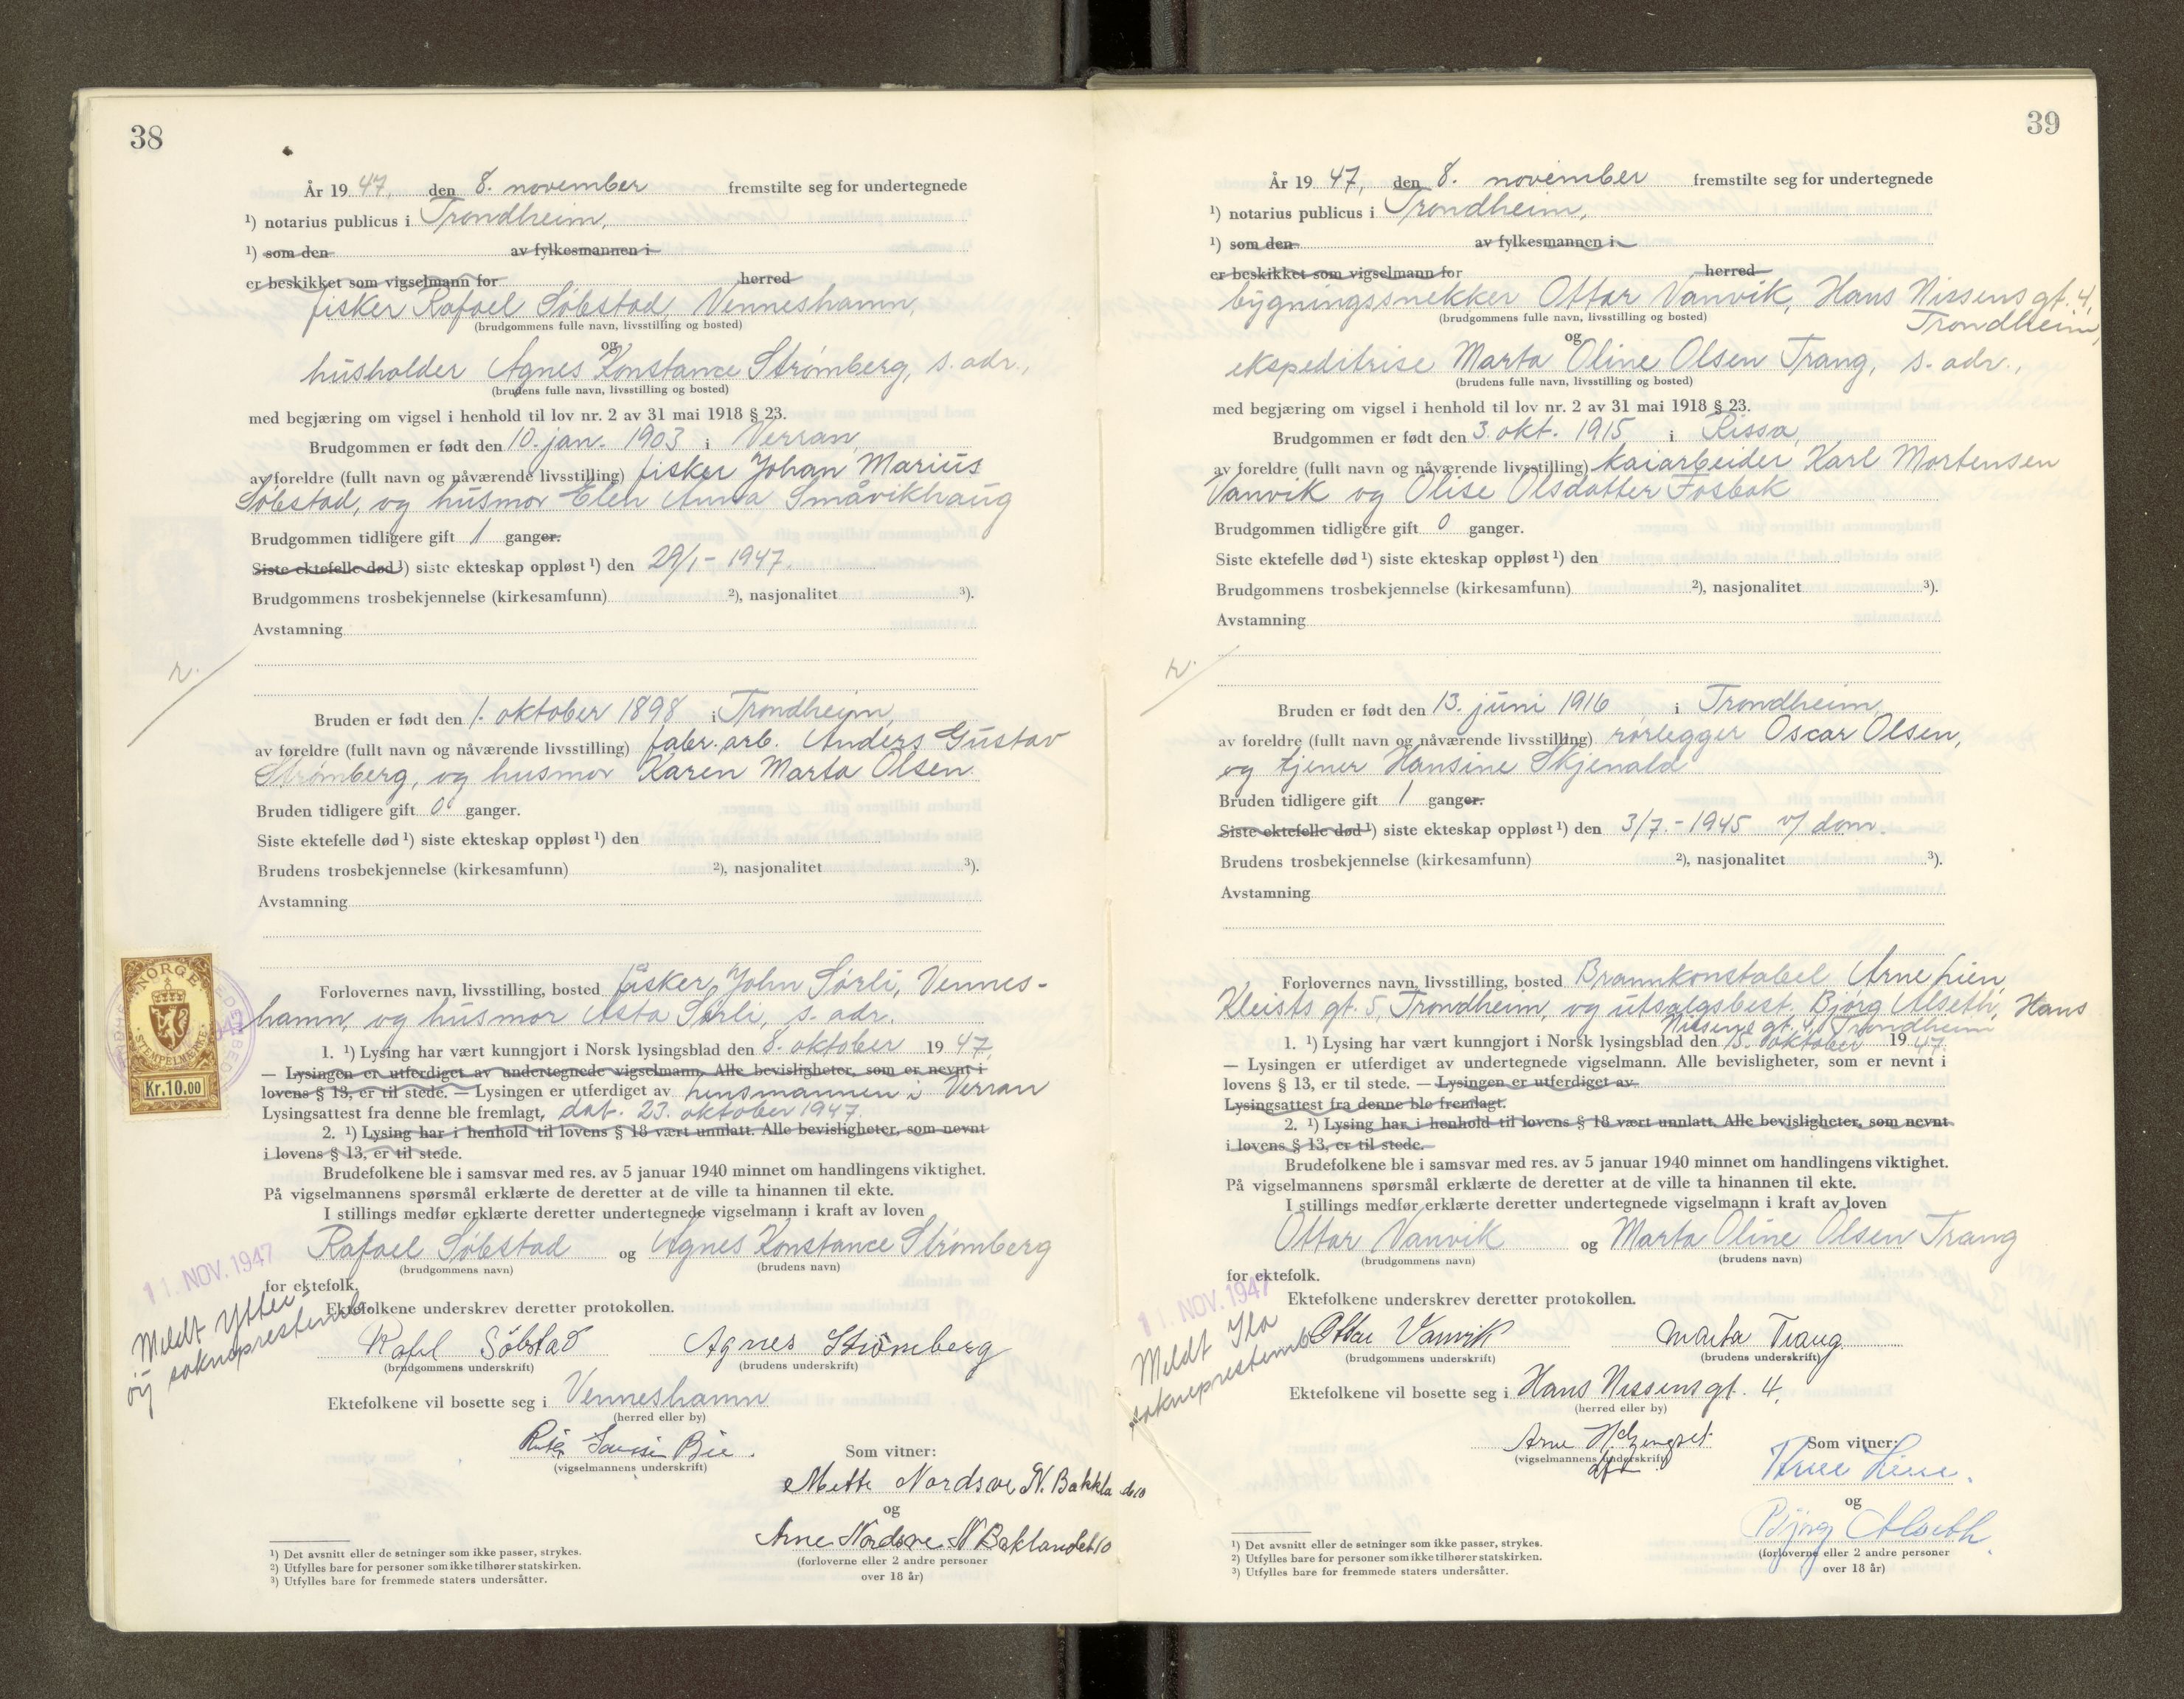 38
År 19 47, den 8. november fremstilte seg for undertegnede
¹) notarius publicus i Trondheim,
¹) som den av fylkesmannen i
er beskikket som vigselmann for herred
fisker Rafael Søbstad, Venneshamn,
(brudgommens fulle navn, livsstilling og bosted)
og
husholder Agnes Konstance Strømberg, s. adr.,
(brudens fulle navn, livsstilling og bosted)
med begjæring om vigsel i henhold til lov nr. 2 av 31 mai 1918 § 23.
Brudgommen er født den 10. jan. 1903 i Verran,
av foreldre (fullt navn og nåværende livsstilling) fisker Johan Marius
Søbstad, og husmor Elen Anna Småvikhaug
Brudgommen tidligere gift 1 ganger.
Siste ektefelle død ¹) siste ekteskap oppløst ¹) den 29/1 - 1947.
Brudgommens trosbekjennelse (kirkesamfunn) ²), nasjonalitet ³).
Avstamning
r.
Bruden er født den 1. oktober 1898 i Trondheim,
av foreldre (fullt navn og nåværende livsstilling) fabr. arb. Anders Gustav
Strømberg, og husmor Karen Marta Olsen
Bruden tidligere gift 0 ganger.
Siste ektefelle død ¹) siste ekteskap oppløst ¹) den
Brudens trosbekjennelse (kirkesamfunn) ²), nasjonalitet ³).
Avstamning
NORGE
STEMPELMERKE
Kr. 10.00
Forlovernes navn, livsstilling, bosted fisker John Sørli, Vennes-
hamn, og husmor Asta Sørli, s. adr.
1. ¹) Lysing har vært kunngjort i Norsk lysingsblad den 8. oktober 19 47,
— Lysingen er utferdiget av undertegnede vigselmann. Alle bevisligheter, som er nevnt i
lovens § 13, er til stede. — Lysingen er utferdiget av lensmannen i Verran
Lysingsattest fra denne ble fremlagt, dat. 23. oktober 1947.
2. ¹) Lysing har i henhold til lovens § 18 vært unnlatt. Alle bevisligheter, som nevnt
i lovens § 13, er til stede.
Brudefolkene ble i samsvar med res. av 5 januar 1940 minnet om handlingens viktighet.
På vigselmannens spørsmål erklærte de deretter at de ville ta hinannen til ekte.
I stillings medfør erklærte deretter undertegnede vigselmann i kraft av loven
Rafael Søbstad og Agnes Konstance Strømberg
(brudgommens navn) (brudens navn)
for ektefolk.
11. NOV. 1947
Meldt Ytter-
øy sokneprestemb.
Ektefolkene underskrev deretter protokollen.
Rafel Søbstad Agnes Strømberg
(brudgommens underskrift) (brudens underskrift)
Ektefolkene vil bosette seg i Venneshamn
(herred eller by)
(vigselmannens underskrift)
Som vitner:
Mette Nordsve N. Bakkla de10
og
Arne Nordsve N Baklandet 10
(forloverne eller 2 andre personer
over 18 år)
¹) Det avsnitt eller de setninger som ikke passer, strykes.
²) Utfylles bare for personer som ikke tilhører statskirken.
³) Utfylles bare for fremmede staters undersåtter.
39
År 19 47, den 8. november fremstilte seg for undertegnede
¹) notarius publicus i Trondheim,
¹) som den av fylkesmannen i
er beskikket som vigselmann for herred
bygningssnekker Ottar Vanvik, Hans Nissens gt. 4,
Trondheim,
(brudgommens fulle navn, livsstilling og bosted)
og
ekspeditrise Marta Oline Olsen Trang, s. adr.,
(brudens fulle navn, livsstilling og bosted)
med begjæring om vigsel i henhold til lov nr. 2 av 31 mai 1918 § 23.
Brudgommen er født den 3. okt. 1915 i Rissa,
av foreldre (fullt navn og nåværende livsstilling) kaiarbeider Karl Mortensen
Vanvik og Olise Olsdatter Fosbak
Brudgommen tidligere gift 0 ganger.
Siste ektefelle død ¹) siste ekteskap oppløst ¹) den
Brudgommens trosbekjennelse (kirkesamfunn) ²), nasjonalitet ³).
Avstamning
r.
Bruden er født den 13. juni 1916 i Trondheim,
av foreldre (fullt navn og nåværende livsstilling) rørlegger Oscar Olsen,
og tjener Hansine Skjenald
Bruden tidligere gift 1 ganger.
Siste ektefelle død ¹) siste ekteskap oppløst ¹) den 3/7. - 1945 v/ dom.
Brudens trosbekjennelse (kirkesamfunn) ²), nasjonalitet ³).
Avstamning
Forlovernes navn, livsstilling, bosted Brannkonstabel Arne Lien,
Kleists gt. 5, Trondheim, og utsalgsbest. Bjørg Alseth, Hans
Nissens gt. 4, Trondheim
1. ¹) Lysing har vært kunngjort i Norsk lysingsblad den 15. oktober 19 47.
— Lysingen er utferdiget av undertegnede vigselmann. Alle bevisligheter, som er nevnt i
lovens § 13, er til stede. — Lysingen er utferdiget av
Lysingsattest fra denne ble fremlagt.
2. ¹) Lysing har i henhold til lovens § 18 vært unnlatt. Alle bevisligheter, som nevnt
i lovens § 13, er til stede.
Brudefolkene ble i samsvar med res. av 5 januar 1940 minnet om handlingens viktighet.
På vigselmannens spørsmål erklærte de deretter at de ville ta hinannen til ekte.
I stillings medfør erklærte deretter undertegnede vigselmann i kraft av loven
Ottar Vanvik og Marta Oline Olsen Trang
(brudgommens navn) (brudens navn)
for ektefolk.
11. NOV. 1947
Meldt Ila
sokneprestemb.
Ektefolkene underskrev deretter protokollen.
Ottar Vanvik Marta Trang
(brudgommens underskrift) (brudens underskrift)
Ektefolkene vil bosette seg i Hans Nissens gt. 4,
(herred eller by)
Arne
(vigselmannens underskrift)
Som vitner:
Arne Lien.
og
Bjørg Alseth.
(forloverne eller 2 andre personer
over 18 år)
¹) Det avsnitt eller de setninger som ikke passer, strykes.
²) Utfylles bare for personer som ikke tilhører statskirken.
³) Utfylles bare for fremmede staters undersåtter.